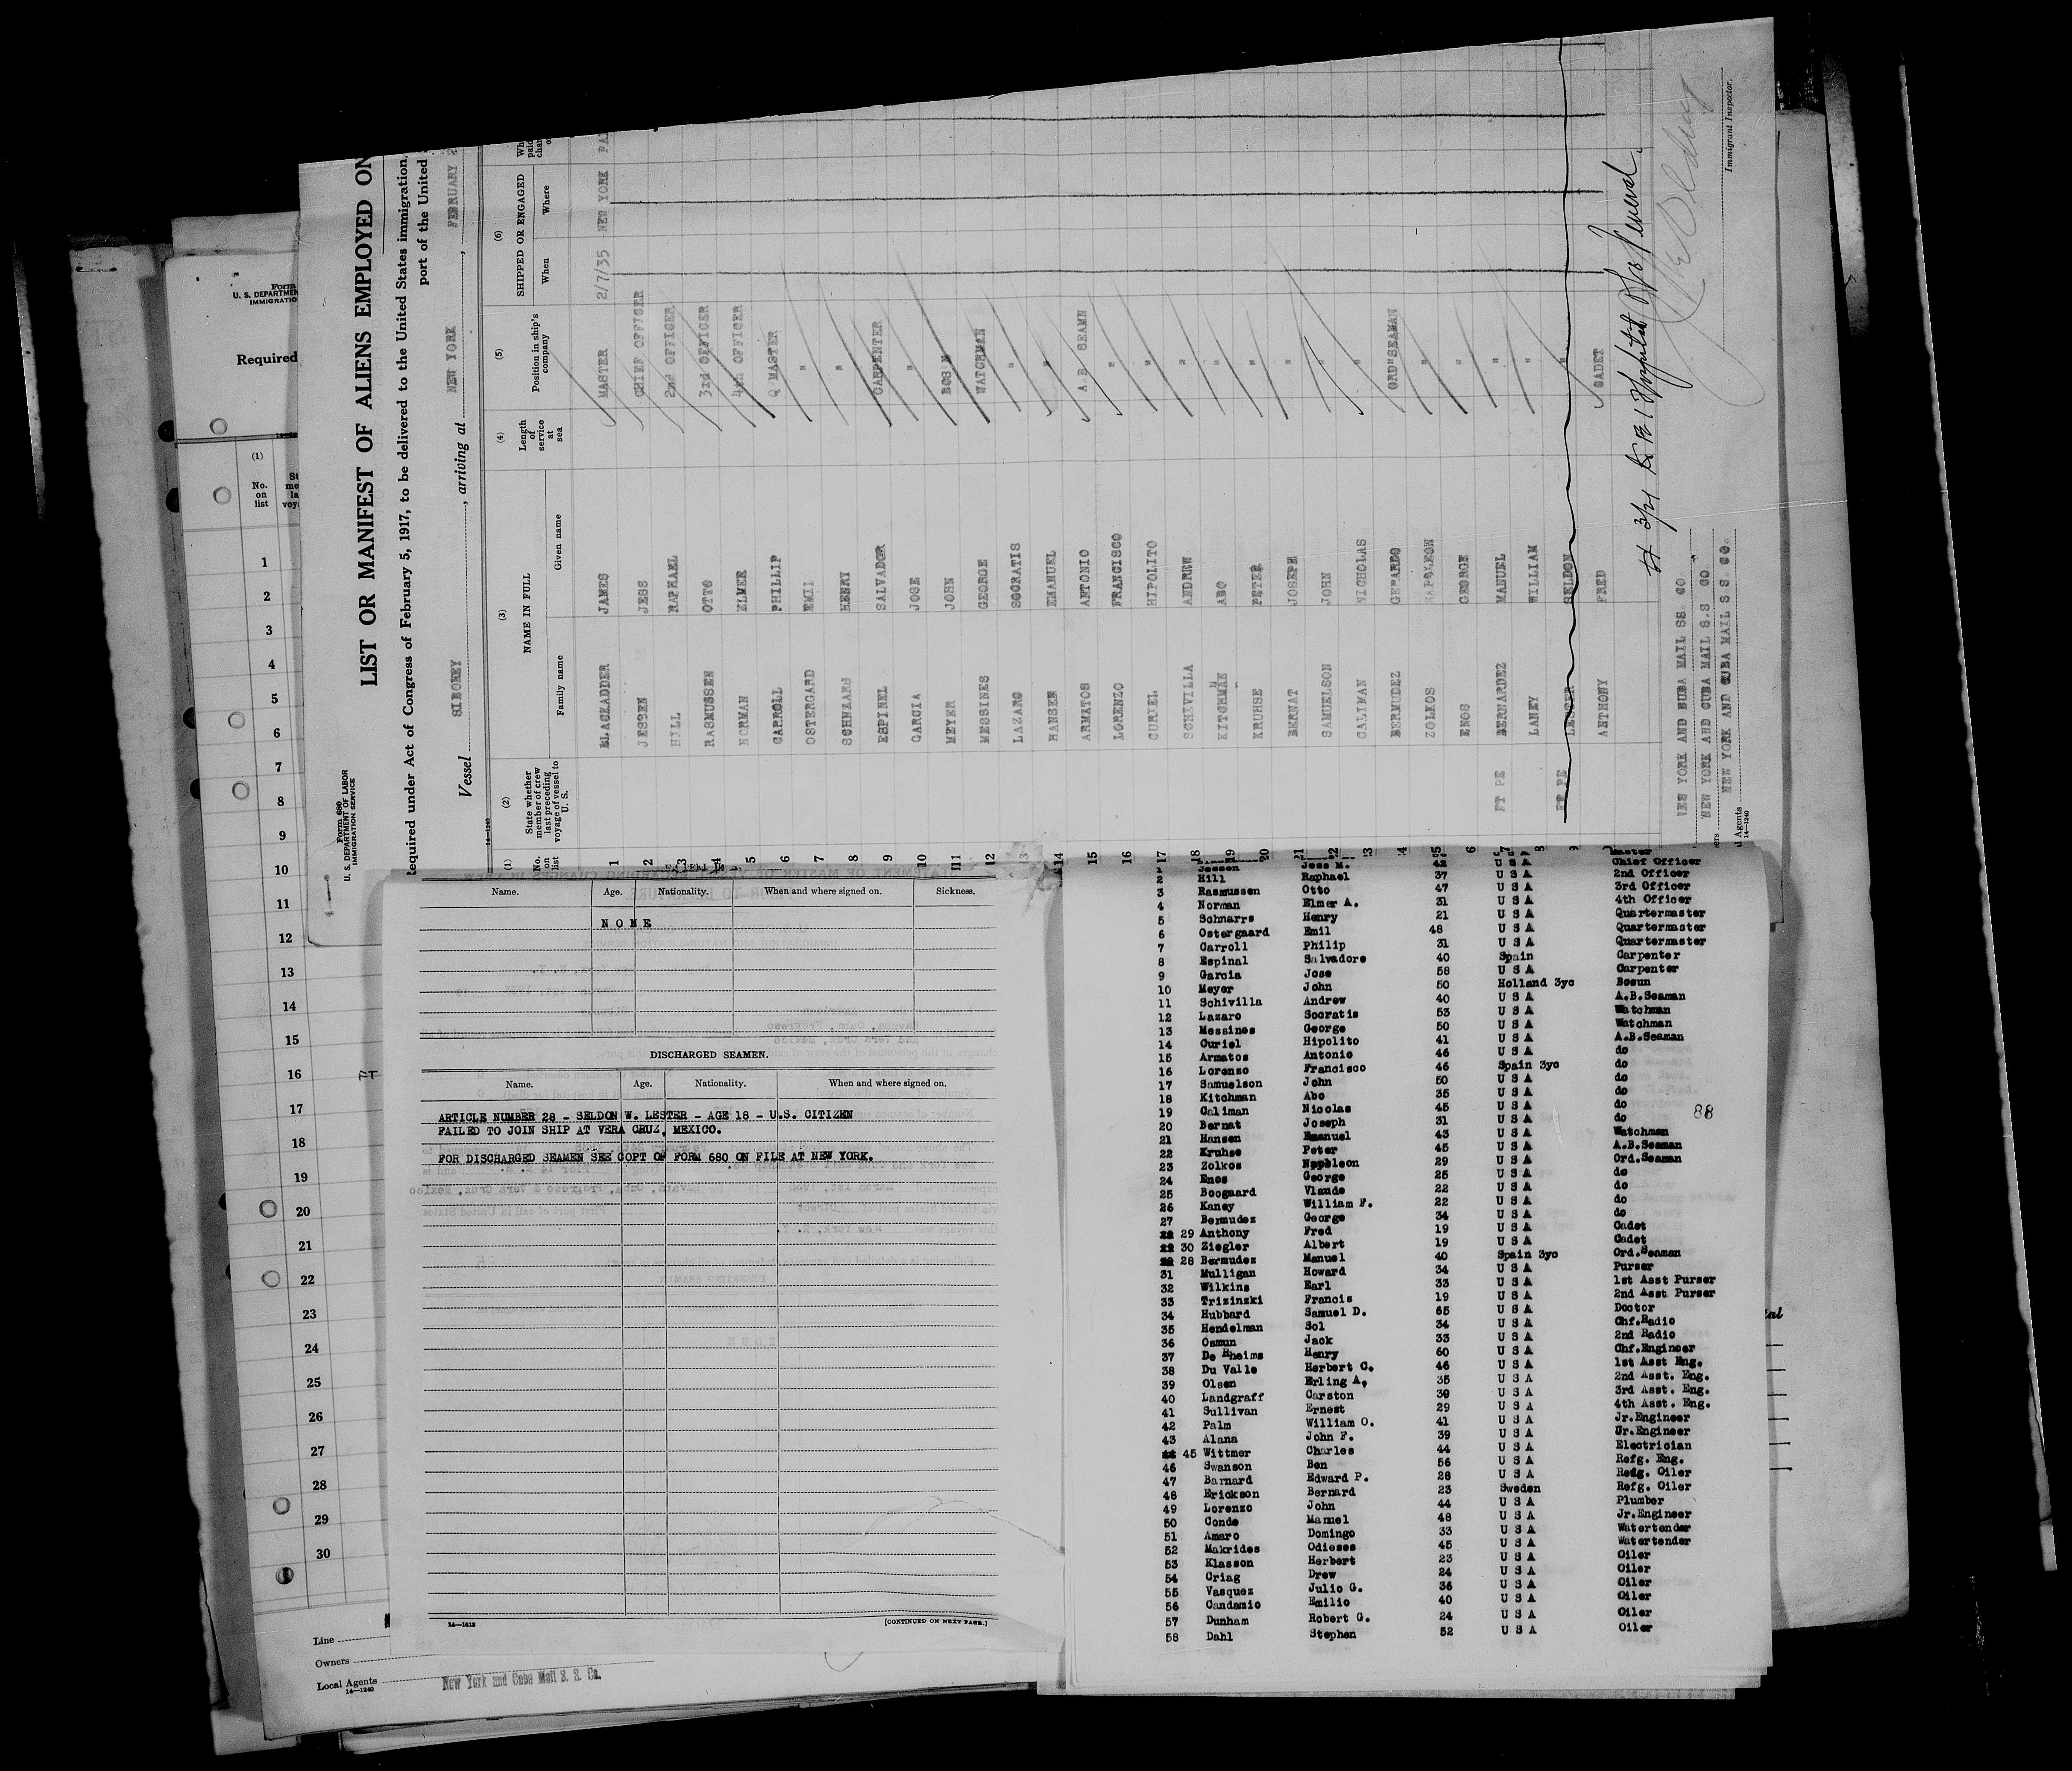 Form 680
U. S. DEPARTMENT OF LABOR
IMMIGRATION SERVICE
LIST OR MANIFEST OF ALIENS EMPLOYED ON
equired under Act of Congress of February 5, 1917, to be delivered to the United States immigration
port of the United
Vessel SIBONEY, arriving at NEW YORK, FEBRUARY
(1) (2) (3) (4) (5) (6)
No. on list State whether member of crew last preceding voyage of vessel to U. S. NAME IN FULL Length of service at sea Position in ship's company SHIPPED OR ENGAGED
Family name Given name When Where
1 BLACKADDER JAMES MASTER 2/7/35 NEW YORK
2 JESSEN JESS CHIEF OFFICER
3 HILL RAPHAEL 2nd OFFICER
4 RASMUSSEN OTTO 3rd OFFICER
5 NORMAN ELMER 4th OFFICER
6 CARROLL PHILLIP Q MASTER
7 OSTERGARD EMIL "
8 SCHNAARS HENRY "
9 ESPINEL SALVADOR CARPENTER
10 GARCIA JOSE "
11 MEYER JOHN BOS'N
12 MESSINES GEORGE WATCHMAN
13 LAZARO SOCRATIS "
14 HANSEN EMANUEL "
15 ARMATOS ANTONIO A B SEAMN
16 LORENZO FRANCISCO "
17 CURIEL HIPOLITO "
18 SCHIVILLA ANDREW "
19 KITCHMAN ABO "
20 KRUHSE PETER "
21 BERNAT JOSEPH "
22 SAMUELSON JOHN "
CALIMAN NICHOLAS "
BERMUDEZ GERARDO ORD SEAMAN
ZOLKOS NAPOLEON "
ENOS GEORGE "
PT PE BERNARDEZ MANUEL "
LANKY WILLIAM "
LESTER SELDON "
ANTHONY FRED CADET
NEW YORK AND CUBA MAIL SS. CO.
NEW YORK AND CUBA MAIL S.S CO
NEW YORK AND CUBA MAIL S S. CO.
Agents
14—1240
Immigrant Inspector.
Form
U. S. DEPARTMEN
IMMIGRATIO
Required
(1)
No. on list
1
2
3
4
5
6
7
8
9
10
11
12
13
14
15
16
17
18
19
20
21
22
23
24
25
26
27
28
29
30
Line
Owners
Local Agents New York and Cuba Mail S. S. Co.
14—1240
Name. Age. Nationality. When and where signed on. Sickness.
NONE
DISCHARGED SEAMEN.
Name. Age. Nationality. When and where signed on.
ARTICLE NUMBER 28 - SELDON W. LESTER - AGE 18 - U.S. CITIZEN
FAILED TO JOIN SHIP AT VERA CRUZ, MEXICO.
FOR DISCHARGED SEAMEN SEE COPT OF FORM 680 ON FILE AT NEW YORK.
14—1613 [CONTINUED ON NEXT PAGE.]
Jessen Jess M. 42 U S A Chief Officer
2 Hill Raphael 37 U S A 2nd Officer
3 Rasmussen Otto 47 U S A 3rd Officer
4 Norman Elmer A. 31 U S A 4th Officer
5 Schnarrs Henry 21 U S A Quartermaster
6 Ostergaard Emil 48 U S A Quartermaster
7 Carroll Philip 31 U S A Quartermaster
8 Espinal Salvadore 40 Spain Carpenter
9 Garcia Jose 58 U S A Carpenter
10 Meyer John 50 Holland 3yc Bosun
11 Schivilla Andrew 40 U S A A.B.Seaman
12 Lazaro Socratis 53 U S A Watchman
13 Messines George 50 U S A Watchman
14 Curiel Hipolito 41 U S A A.B.Seaman
15 Armatos Antonio 46 U S A do
16 Lorenzo Francisco 46 Spain 3yc do
17 Samuelson John 50 U S A do
18 Kitchman Abo 35 U S A do
19 Caliman Nicolas 45 U S A do
20 Bernat Joseph 31 U S A do
21 Hansen Emanuel 43 U S A Watchman
22 Kruhse Peter 45 U S A A.B.Seaman
23 Zolkos Nappleon 29 U S A Ord.Seaman
24 Enos George 25 U S A do
25 Boogaard Vlaude 22 U S A do
26 Kaney William F. 22 U S A do
27 Bermudez George 34 U S A do
29 Anthony Fred 19 U S A Cadet
30 Ziegler Albert 19 U S A Cadet
28 Bermudez Manuel 40 Spain 3yc Ord.Seaman
31 Mulligan Howard 34 U S A Purser
32 Wilkins Earl 33 U S A 1st Asst Purser
33 Trizinski Francis 19 U S A 2nd Asst Purser
34 Hubbard Samuel D. 65 U S A Doctor
35 Hendelman Sol 34 U S A Chf.Radio
36 Osmun Jack 33 U S A 2nd Radio
37 De Rheims Henry 60 U S A Chf.Engineer
38 Du Valle Herbert C. 46 U S A 1st Asst Eng.
39 Olsen Erling A. 35 U S A 2nd Asst. Eng.
40 Landgraff Carston 39 U S A 3rd Asst. Eng.
41 Sullivan Ernest 29 U S A 4th Asst. Eng.
42 Palm William O. 41 U S A Jr.Engineer
43 Alana John F. 39 U S A Jr.Engineer
45 Wittmer Charles 44 U S A Electrician
46 Swanson Ben 56 U S A Refg. Eng.
47 Barnard Edward P. 28 U S A Refg. Oiler
48 Erickson Bernard 23 Sweden Refg. Oiler
49 Lorenzo John 44 U S A Plumber
50 Conde Manuel 48 U S A Jr.Engineer
51 Amaro Domingo 33 U S A Watertender
52 Makrides Odieses 45 U S A Watertender
53 Klasson Herbert 23 U S A Oiler
54 Criag Drew 24 U S A Oiler
55 Vasquez Julio G. 36 U S A Oiler
56 Candamio Emilio 40 U S A Oiler
57 Dunham Robert G. 24 U S A Oiler
58 Dahl Stephen 52 U S A Oiler
88